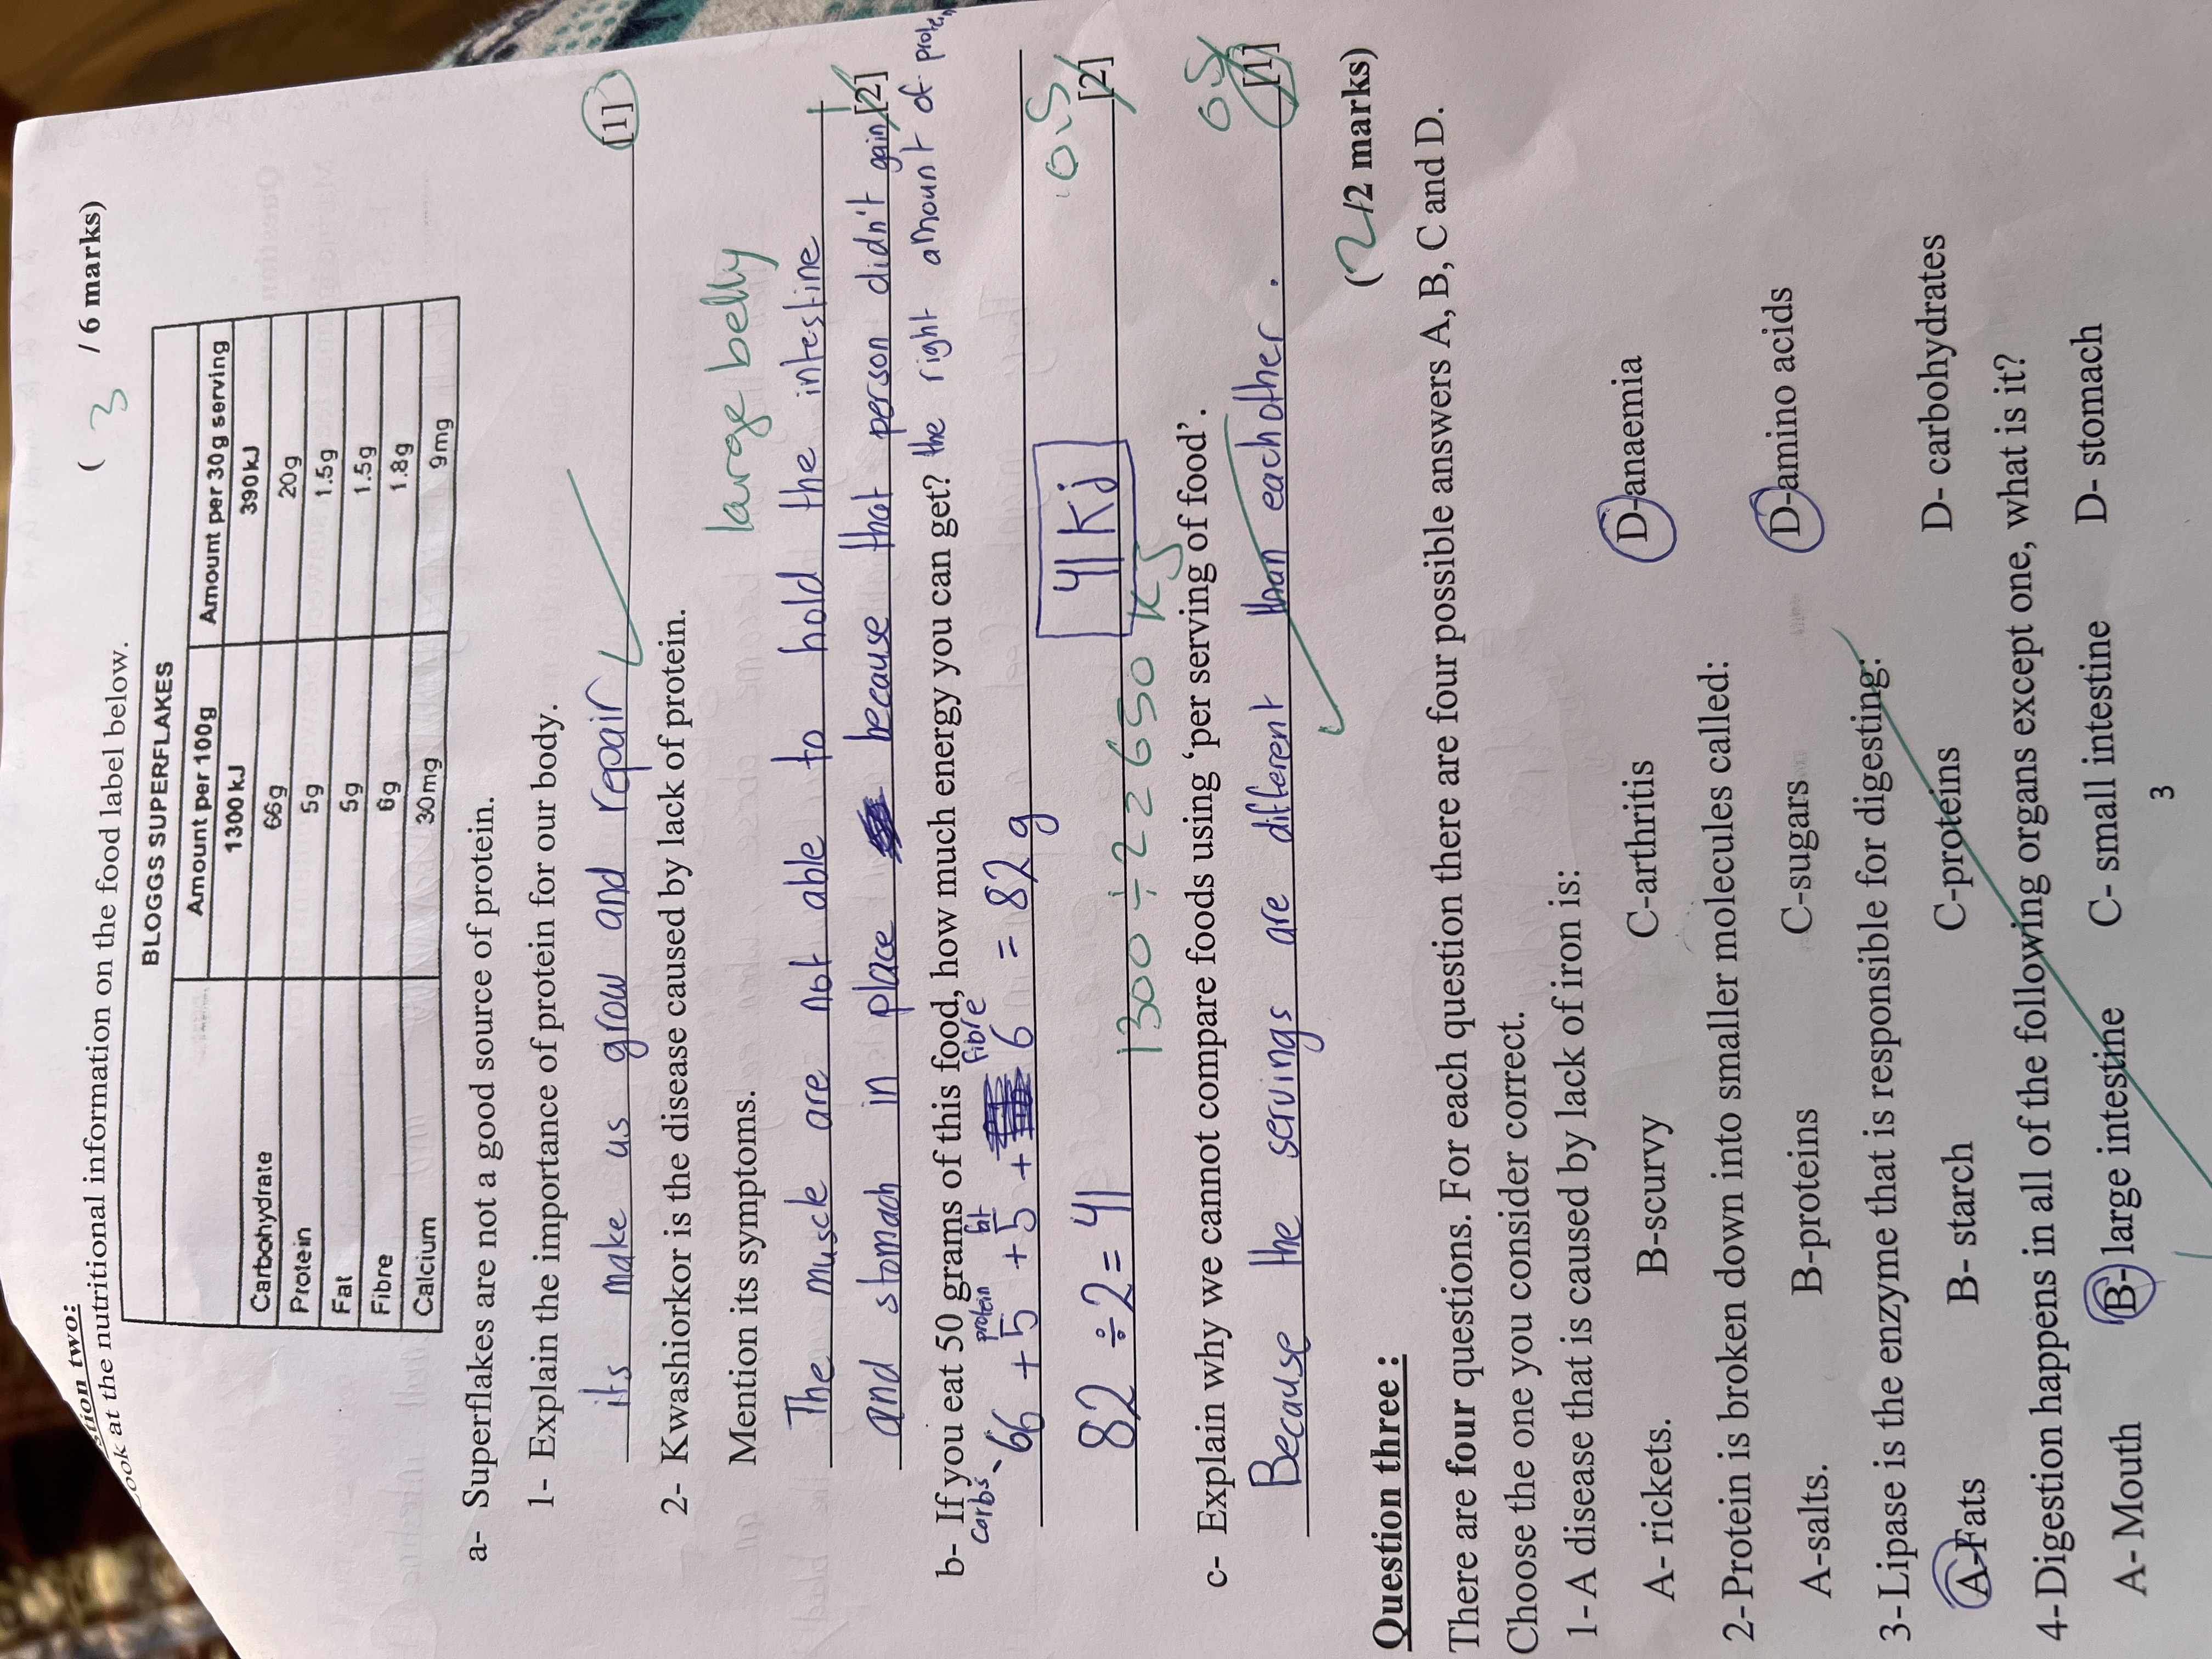 stion two:
ook at the nutritional information on the food label below.
( 3 / 6 marks)
BLOGGS SUPERFLAKES
Amount per 100g Amount per 30g serving
1300 kJ 390kJ
Carbohydrate 66g 20g
Protein 5g 1.5g
Fat 5g 1.5g
Fibre 6g 1.8g
Calcium 30mg 9mg
a- Superflakes are not a good source of protein.
1- Explain the importance of protein for our body.
its make us grow and repair [1]
2- Kwashiorkor is the disease caused by lack of protein.
Mention its symptoms.
large belly
The muscle are not able to hold the intestine 1
and stomach in place because that person didn't gain [2]
the right amount of protein
b- If you eat 50 grams of this food, how much energy you can get?
carbs protein fat fibre
66 + 5 + 5 + 6 = 82 g
0.5
82 ÷ 2 = 41 41 kj [2]
1300 ÷ 2 = 650 KJ
c- Explain why we cannot compare foods using ‘per serving of food’.
0.5
Because the servings are different than each other. [1]
Question three :
(2/2 marks)
There are four questions. For each question there are four possible answers A, B, C and D.
Choose the one you consider correct.
1- A disease that is caused by lack of iron is:
A- rickets. B-scurvy C-arthritis D-anaemia
2-Protein is broken down into smaller molecules called:
A-salts. B-proteins C-sugars D-amino acids
3-Lipase is the enzyme that is responsible for digesting:
A-Fats B- starch C-proteins D- carbohydrates
4-Digestion happens in all of the following organs except one, what is it?
A- Mouth B- large intestine C- small intestine D- stomach
3